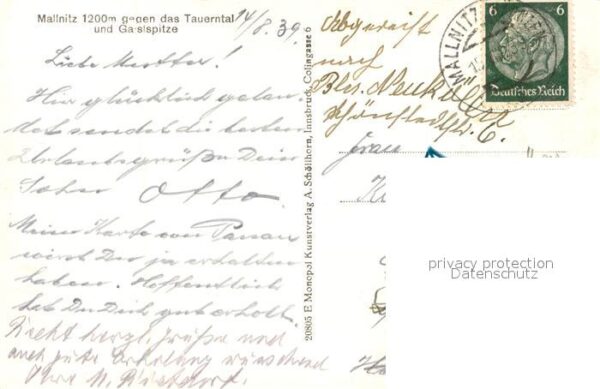 Mallnitz 1200m gegen das Tauerntal
und Gaislspitze
14/8. 39.
Liebe Mutter!
Hier glücklich gelan-
det sendet die besten
Urlaubsgrüße Dein
Sohn Otto.
Meine Karte von Passau
wirst Du ja erhalten
haben. Hoffentlich
hast Du Dich gut erholt.
Recht herzl. Grüße und
auch gute Erholung wünschend
Ihre M.
20805 E Monopol Kunstverlag A. Schöllhorn, Innsbruck, Colingasse 6
Abgereist
nach
Bln. Neukölln
6.
Frau
MALLNITZ
6 6
Deutsches Reich
privacy protection
Datenschutz